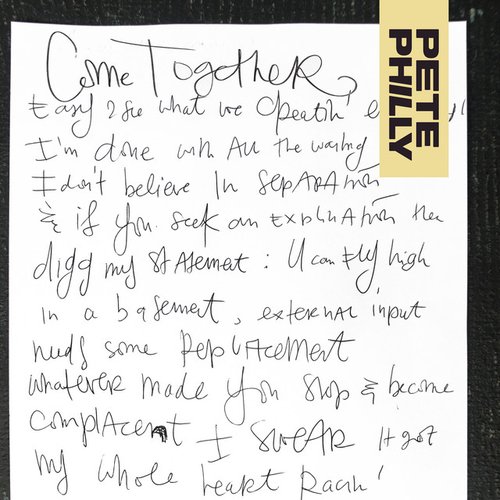 Come Together
Easy 2 see what we Operatin'
I'm done with All the waiting
I don't believe In Separation
& if you seek an Explanation then
digg my statement: U can Fly high
in a basement, external input
needs some Replacement
Whatever made you stop & become
Complacent I swear it got
My whole heart Racin'
PETE
PHILLY